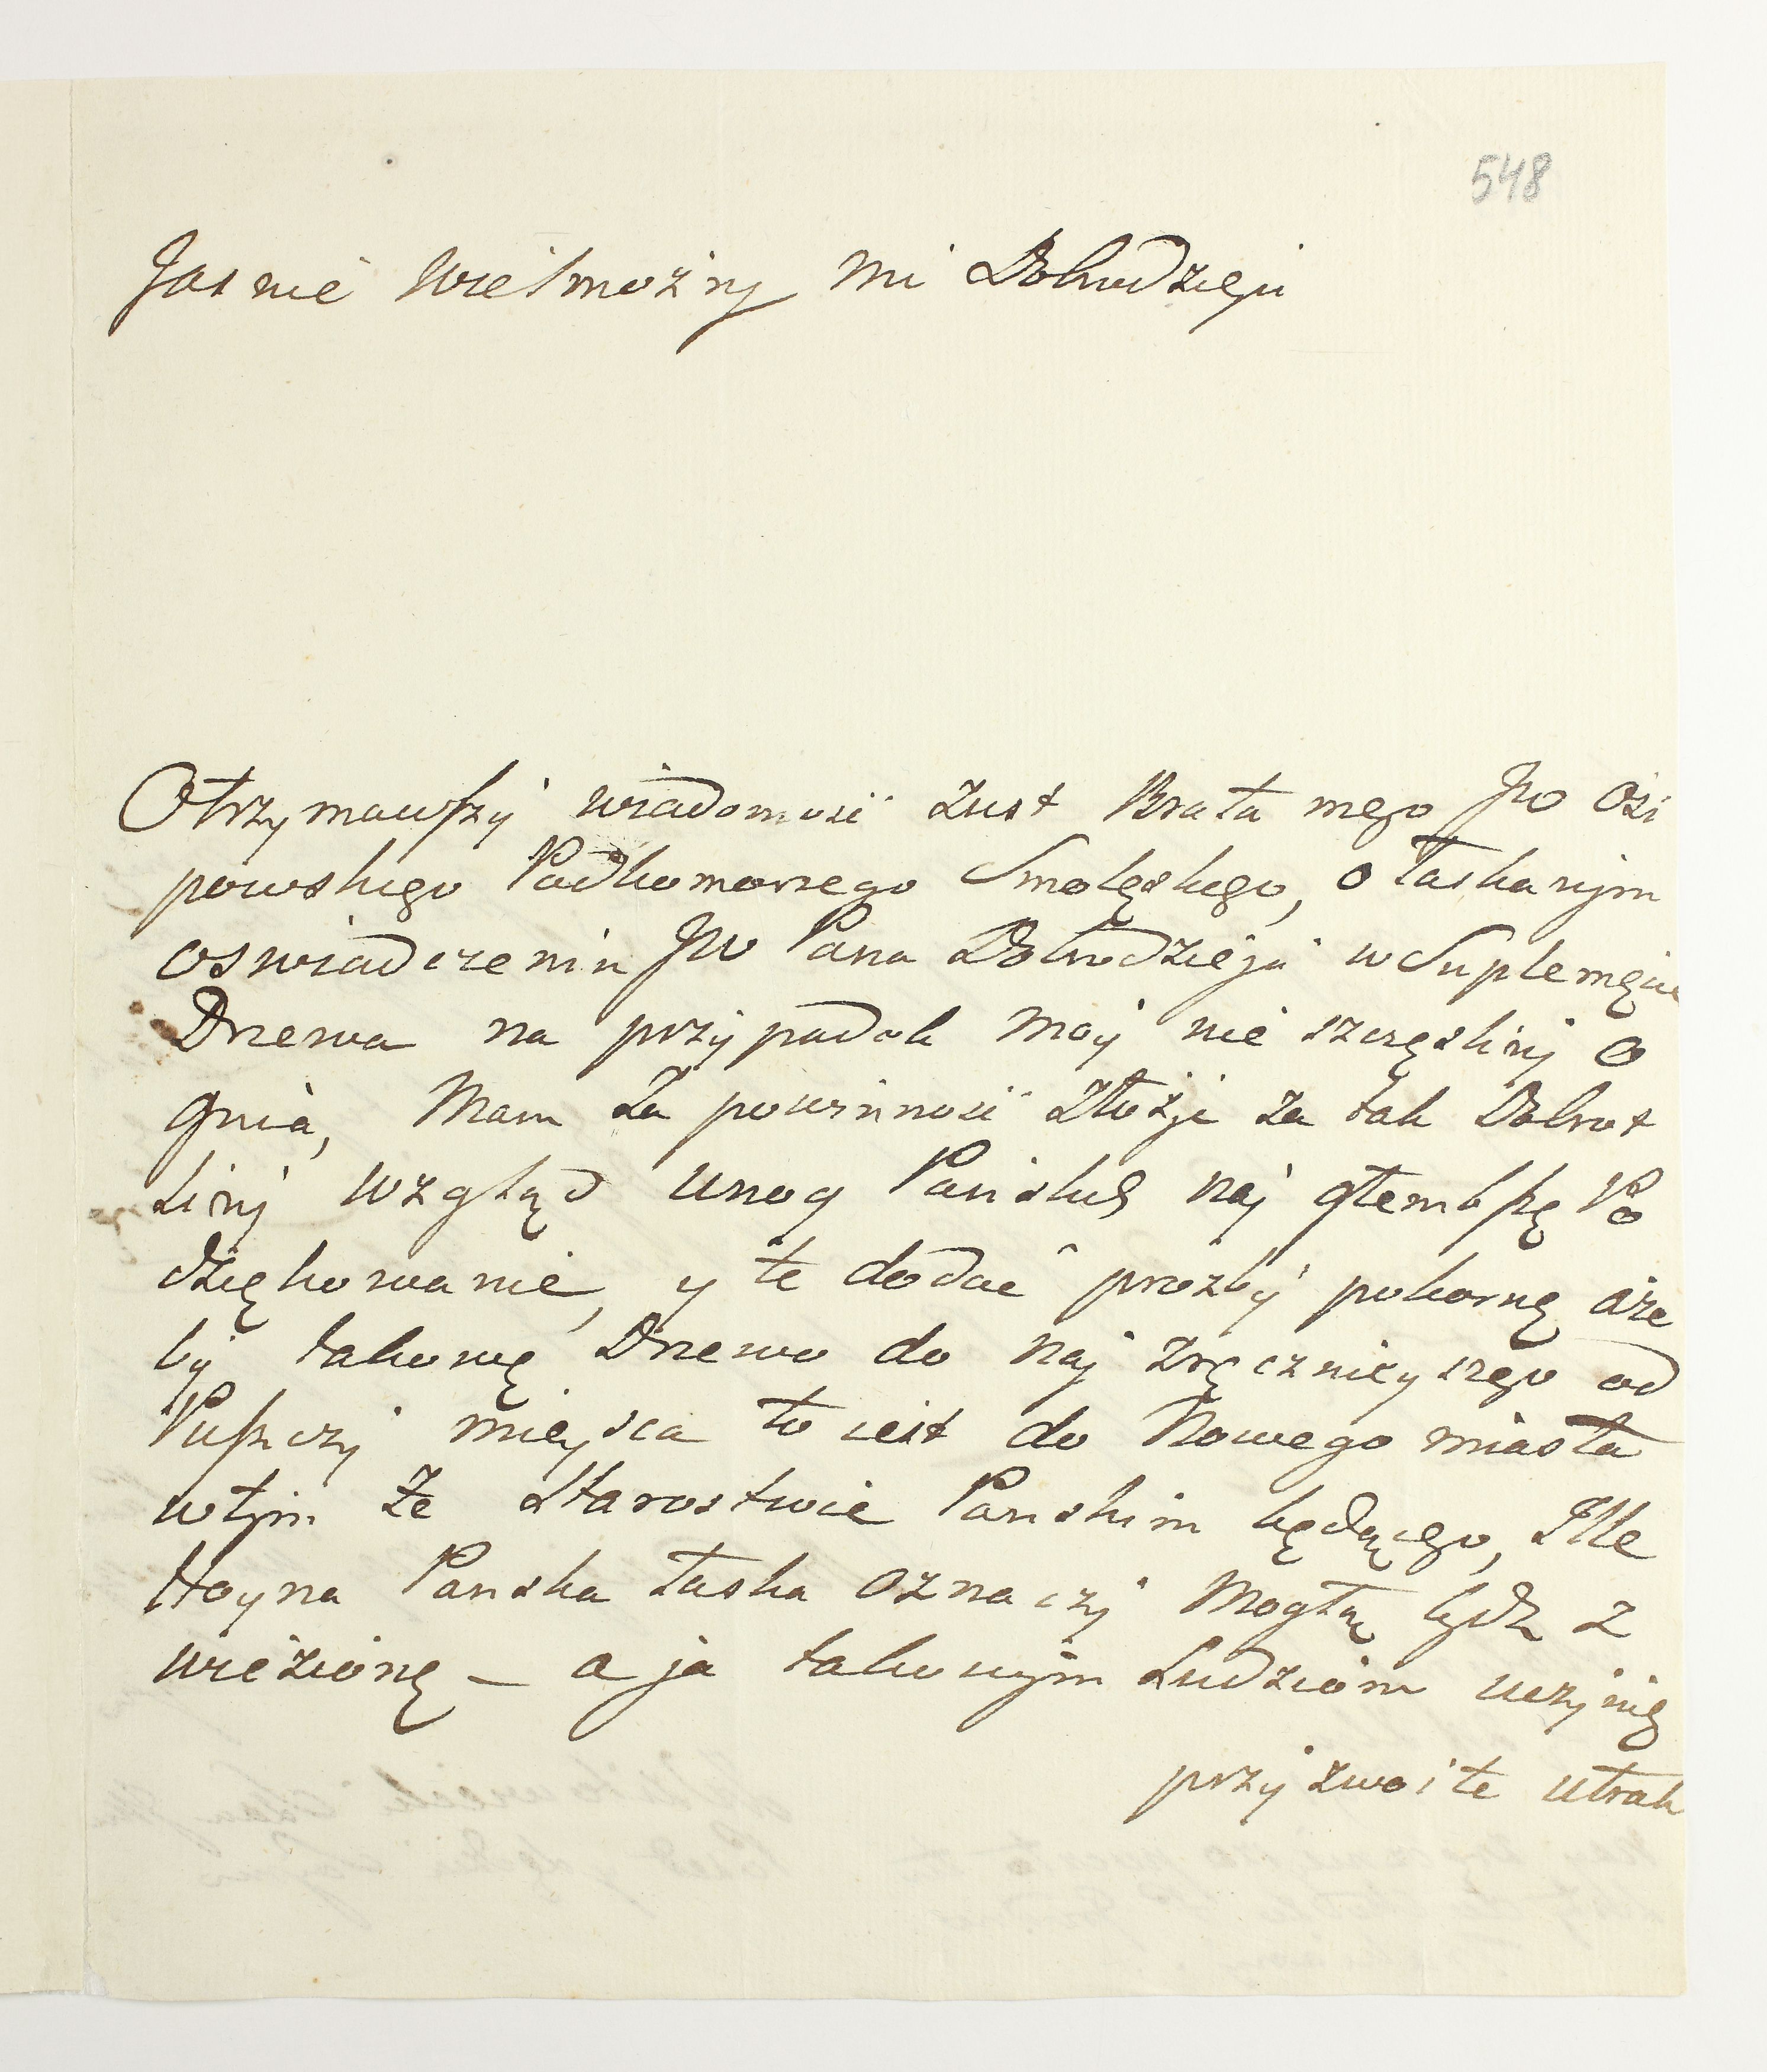 548
Jasnie Wielmożny Mi Dobrodzieju
Otrzymawszy wiadomość zust Brata mego JW Osi
powskiego Podkomorzego Smolęskiego, o łaskawym
oswiadczeniu JW Pana Dobrodzieja w Suplemęcie
Drzewa na przypadek moy nie szczęsliwy O
gnia, Mam za powinność złożyć za tak Dobrot
liwy wzgląd unog Pańskich nay głembszę Po
dziękowanie, y te dodać prozby pokornę aże
by takowę Drzewo do nay zręcznieyszego od
Puszczy mieysca to iest do Nowego miasta
wtym że Starostwie Panskim będącego, Ille
Hoyna Panska łaska oznaczy Mogłą bydz z
wieżionę – a ja takowym Ludziom uczynię
przyzwoite utrak